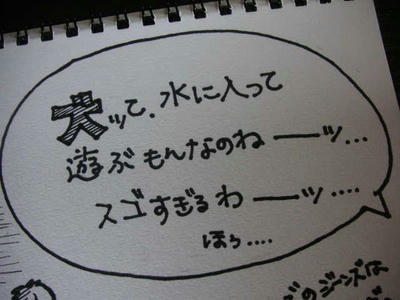 犬ッて、水に入って
遊ぶもんなのねーーッ…
スゴすぎるわーーッ‥‥
ほら‥‥
のジーンズは